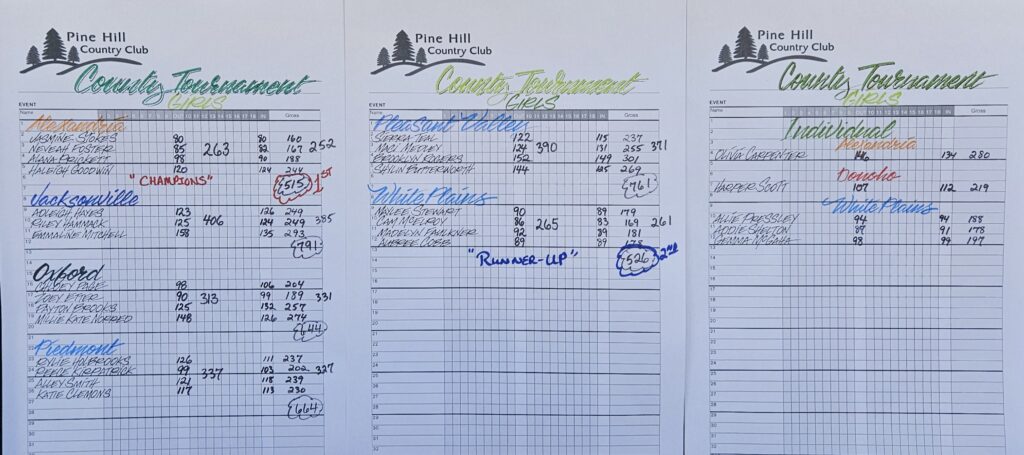 Pine Hill
Country Club
County Tournament
GIRLS
EVENT
Name Gross
Alexandria
JASMINE STOKES 90 80 160
NEVEAH FOSTER 85 263 82 167 252
ALANA PRICKETT 98 90 188
HALEIGH GOODWIN 120 124 244
"CHAMPIONS" 515 1ST
Jacksonville
ADLEIGH HAYES 123 126 249
RILEY HAMMACK 125 406 124 249 385
EMMALINE MITCHELL 158 135 293
791
Oxford
PAGE 98 106 204
ZOEY ETTER 90 313 99 189 331
PAYTON BROOKS 125 132 257
MILLIE KATE NORRED 148 126 274
644
Piedmont
RYLIE HOLBROOKS 126 111 237
REECE KIRKPATRICK 99 337 103 202 327
ALLEY SMITH 121 118 239
KATIE CLEMONS 117 113 230
664
Pine Hill
Country Club
County Tournament
GIRLS
EVENT
Name Gross
Pleasant Valley
SIERRA TEAL 122 115 237
MACI MEDLEY 124 390 131 255 371
BROOKLYN ROGERS 152 149 301
SHYLIN BUTTERWORTH 144 125 269
761
White Plains
BAYLEE STEWART 90 89 179
CAM MCELROY 86 265 83 169 261
MADELYN FAULKNER 92 89 181
AUBREE COBB 89 89 178
"RUNNER-UP" 526 2ND
Pine Hill
Country Club
County Tournament
GIRLS
EVENT
Name Gross
Individual
Alexandria
OLIVIA CARPENTER 146 134 280
Donoho
HARPER SCOTT 107 112 219
White Plains
ALLIE PRESSLEY 94 94 188
ADDIE SHELTON 87 91 178
GEMMA MCGAHA 98 99 197